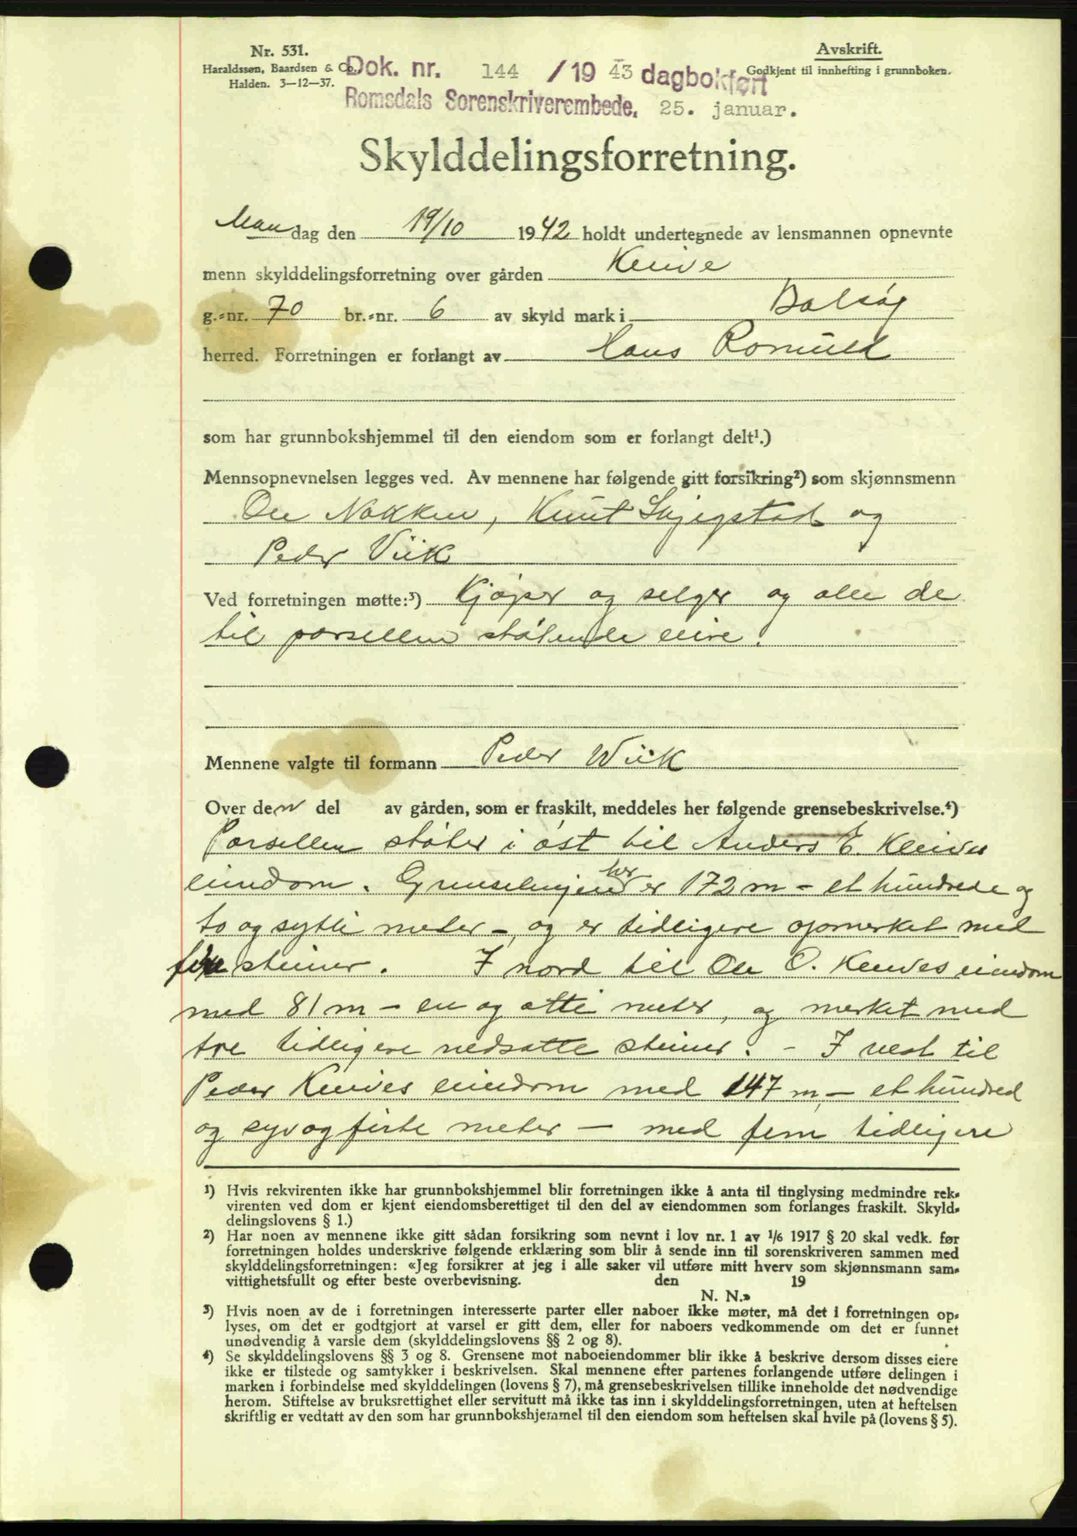 Nr. 531.
Haraldssøn, Baardsen & Co.
Halden. 3-12-37.
Avskrift.
Godkjent til innhefting i grunnboken.
Dok. nr. 144 /19 43 dagbokført
Romsdals Sorenskriverembede, 25. januar.
Skylddelingsforretning.
Mandag den 19/10 1942 holdt undertegnede av lensmannen opnevnte
menn skylddelingsforretning over gården
g.-nr. 70 br.-nr. 6 av skyld mark i Bolsøy
herred. Forretningen er forlangt av Hans
som har grunnbokshjemmel til den eiendom som er forlangt delt¹.)
Mennsopnevnelsen legges ved. Av mennene har følgende gitt forsikring²) som skjønnsmenn
Ole Nakken, Knut og
Peder Viik
Ved forretningen møtte:³) Kjøper og selger og alle de
til parsellen støtende eiere.
Mennene valgte til formann Peder Wiik
Over den del av gården, som er fraskilt, meddeles her følgende grensebeskrivelse.⁴)
Parsellen støter i øst til Anders E.
eiendom. Grenselinjen her er 172 m – et hundrede og
to og sytti meter –, og er tidligere opmerket med
fire steiner. I nord til Ole O. eiendom
med 81 m – en og otti meter, og merket med
tre tidligere nedsatte steiner. – I vest til
Peder eiendom med 147 m, – et hundred
og syv og førte meter – med fem tidligere
¹) Hvis rekvirenten ikke har grunnbokshjemmel blir forretningen ikke å anta til tinglysing medmindre rek-
virenten ved dom er kjent eiendomsberettiget til den del av eiendommen som forlanges fraskilt. Skyld-
delingslovens § 1.)
²) Har noen av mennene ikke gitt sådan forsikring som nevnt i lov nr. 1 av 1/6 1917 § 20 skal vedk. før
forretningen holdes underskrive følgende erklæring som blir å sende inn til sorenskriveren sammen med
skylddelingsforretningen: «Jeg forsikrer at jeg i alle saker vil utføre mitt hverv som skjønnsmann sam-
vittighetsfullt og efter beste overbevisning. den 19
N. N.»
³) Hvis noen av de i forretningen interesserte parter eller naboer ikke møter, må det i forretningen op-
lyses, om det er godtgjort at varsel er gitt dem, eller for naboers vedkommende om det er funnet
unødvendig å varsle dem (skylddelingslovens §§ 2 og 8).
⁴) Se skylddelingslovens §§ 3 og 8. Grensene mot naboeiendommer blir ikke å beskrive dersom disses eiere
ikke er tilstede og samtykker i beskrivelsen. Skal mennene efter partenes forlangende utføre delingen i
marken i forbindelse med skylddelingen (lovens § 7), må grensebeskrivelsen tillike inneholde det nødvendige
herom. Stiftelse av bruksrettighet eller servitutt må ikke tas inn i skylddelingsforretningen, uten at heftelsen
skriftlig er vedtatt av den som har grunnbokshjemmel til den eiendom som heftelsen skal hvile på (lovens § 5).